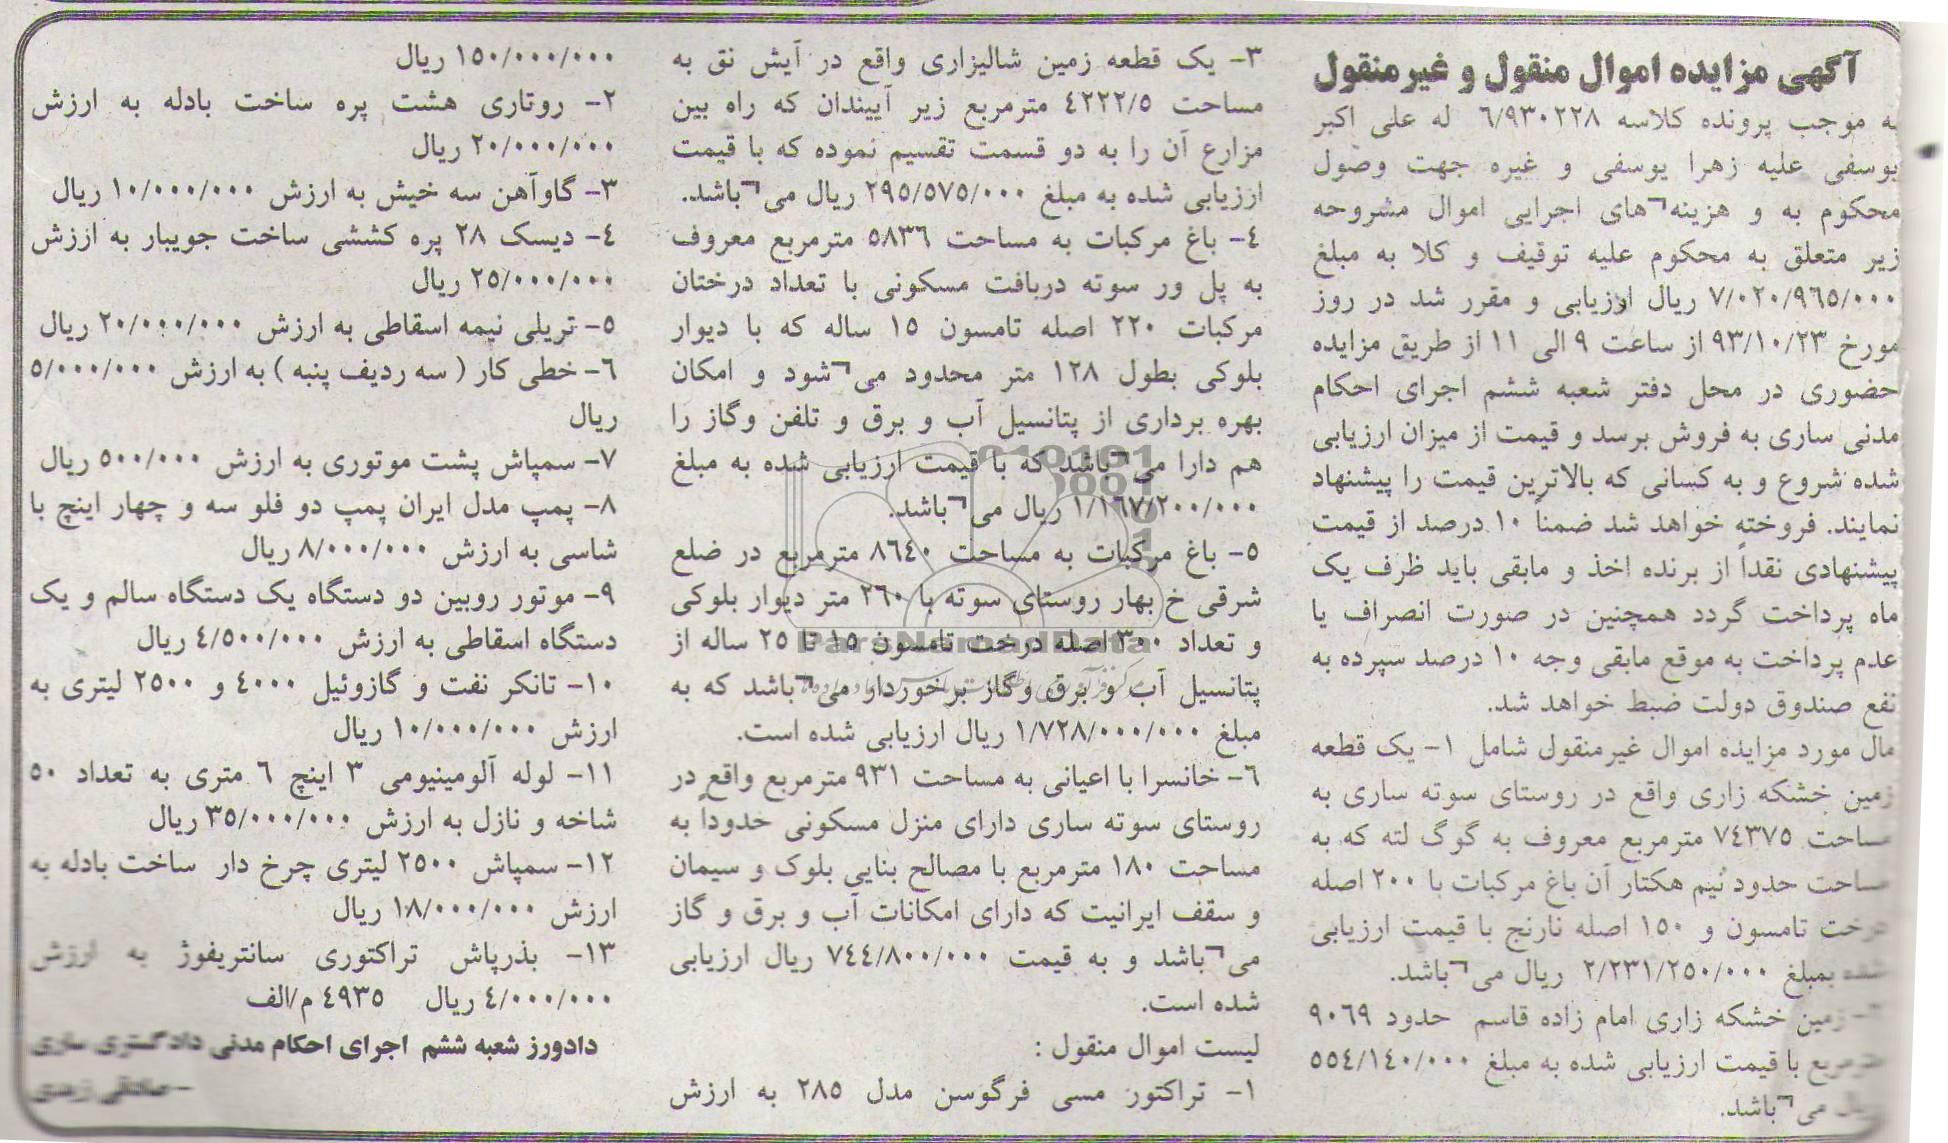 آگهی مزایده اموال منقول و غیرمنقول
به موجب پرونده کلاسه ٦/٩٣٠٢٢٨ له علی اکبر
یوسفی علیه زهرا یوسفی و غیره جهت وصول
محکوم به و هزینه¬های اجرایی اموال مشروحه
زیر متعلق به محکوم علیه توقیف و کلا به مبلغ
٧/٠٢٠/٩٦٥/٠٠٠ ریال ارزیابی و مقرر شد در روز
مورخ ٩٣/١٠/٢٣ از ساعت ٩ الی ١١ از طریق مزایده
حضوری در محل دفتر شعبه ششم اجرای احکام
مدنی ساری به فروش برسد و قیمت از میزان ارزیابی
شده شروع و به کسانی که بالاترین قیمت را پیشنهاد
نمایند. فروخته خواهد شد ضمناً ١٠ درصد از قیمت
پیشنهادی نقداً از برنده اخذ و مابقی باید ظرف یک
ماه پرداخت گردد همچنین در صورت انصراف یا
عدم پرداخت به موقع مابقی وجه ١٠ درصد سپرده به
نفع صندوق دولت ضبط خواهد شد.
مال مورد مزایده اموال غیرمنقول شامل ١- یک قطعه
زمین خشکه زاری واقع در روستای سوته ساری به
مساحت ٧٤٣٧٥ مترمربع معروف به گوگ لته که به
مساحت حدود نیم هکتار آن باغ مرکبات با ٢٠٠ اصله
درخت تامسون و ١٥٠ اصله نارنج با قیمت ارزیابی
شده بمبلغ ٢/٢٣١/٢٥٠/٠٠٠ ریال می¬باشد.
٢- زمین خشکه زاری امام زاده قاسم حدود ٩٠٦٩
مترمربع با قیمت ارزیابی شده به مبلغ ٥٥٤/١٤٠/٠٠٠
ریال می¬باشد.
٣- یک قطعه زمین شالیزاری واقع در آیش نق به
مساحت ٤٢٢٢/٥ مترمربع زیر آبیندان که راه بین
مزارع آن را به دو قسمت تقسیم نموده که با قیمت
ارزیابی شده به مبلغ ٢٩٥/٥٧٥/٠٠٠ ریال می¬باشد.
٤- باغ مرکبات به مساحت ٥٨٣٦ مترمربع معروف
به پل ور سوته دربافت مسکونی با تعداد درختان
مرکبات ٢٢٠ اصله تامسون ١٥ ساله که با دیوار
بلوکی بطول ١٢٨ متر محدود می¬شود و امکان
بهره برداری از پتانسیل آب و برق و تلفن وگاز را
هم دارا می¬باشد که با قیمت ارزیابی شده به مبلغ
١/١٦٧/٢٠٠/٠٠٠ ریال می¬باشد.
٥- باغ مرکبات به مساحت ٨٦٤٠ مترمربع در ضلع
شرقی خ بهار روستای سوته با ٢٦٠ متر دیوار بلوکی
و تعداد ٣٠٠ اصله درخت تامسون ١٥ تا ٢٥ ساله از
پتانسیل آب و برق وگاز برخوردار می¬باشد که به
مبلغ ١/٧٢٨/٠٠٠/٠٠٠ ریال ارزیابی شده است.
٦- خانسرا با اعیانی به مساحت ٩٣١ مترمربع واقع در
روستای سوته ساری دارای منزل مسکونی حدوداً به
مساحت ١٨٠ مترمربع با مصالح بنایی بلوک و سیمان
و سقف ایرانیت که دارای امکانات آب و برق و گاز
می¬باشد و به قیمت ٧٤٤/٨٠٠/٠٠٠ ریال ارزیابی
شده است.
لیست اموال منقول :
١- تراکتور مسی فرگوسن مدل ٢٨٥ به ارزش
١٥٠/٠٠٠/٠٠٠ ریال
٢- روتاری هشت پره ساخت بادله به ارزش
٢٠/٠٠٠/٠٠٠ ریال
٣- گاوآهن سه خیش به ارزش ١٠/٠٠٠/٠٠٠ ریال
٤- دیسک ٢٨ پره کششی ساخت جویبار به ارزش
٢٥/٠٠٠/٠٠٠ ریال
٥- تریلی نیمه اسقاطی به ارزش ٢٠/٠٠٠/٠٠٠ ریال
٦- خطی کار ( سه ردیف پنبه ) به ارزش ٥/٠٠٠/٠٠٠
ریال
٧- سمپاش پشت موتوری به ارزش ٥٠٠/٠٠٠ ریال
٨- پمپ مدل ایران پمپ دو فلو سه و چهار اینچ با
شاسی به ارزش ٨/٠٠٠/٠٠٠ ریال
٩- موتور روبین دو دستگاه یک دستگاه سالم و یک
دستگاه اسقاطی به ارزش ٤/٥٠٠/٠٠٠ ریال
١٠- تانکر نفت و گازوئیل ٤٠٠٠ و ٢٥٠٠ لیتری به
ارزش ١٠/٠٠٠/٠٠٠ ریال
١١- لوله آلومینیومی ٣ اینچ ٦ متری به تعداد ٥٠
شاخه و نازل به ارزش ٣٥/٠٠٠/٠٠٠ ریال
١٢- سمپاش ٢٥٠٠ لیتری چرخ دار ساخت بادله به
ارزش ١٨/٠٠٠/٠٠٠ ریال
١٣- بذرپاش تراکتوری سانتریفوژ به ارزش
٤/٠٠٠/٠٠٠ ریال ٤٩٣٥ م/الف
دادورز شعبه ششم اجرای احکام مدنی دادگستری ساری
ParsNamadData